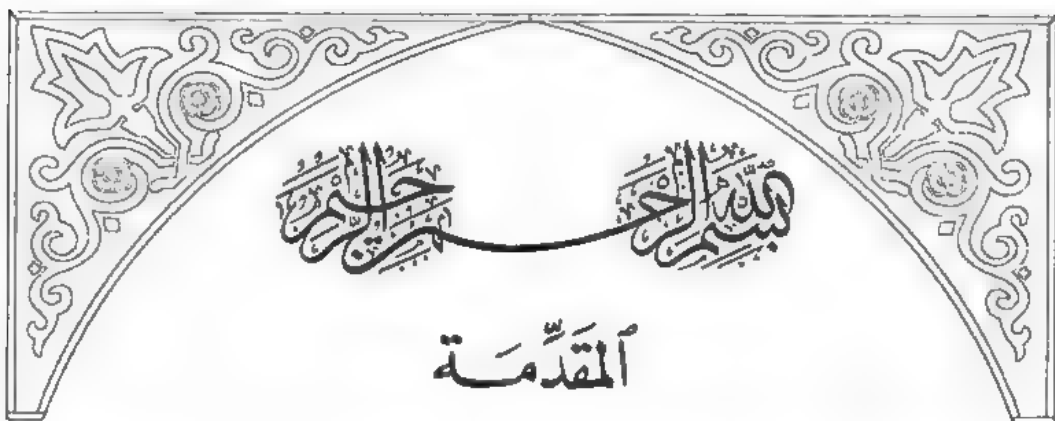 بسم الله الرحمن الرحيم
ٱلمُقَدِّمَة